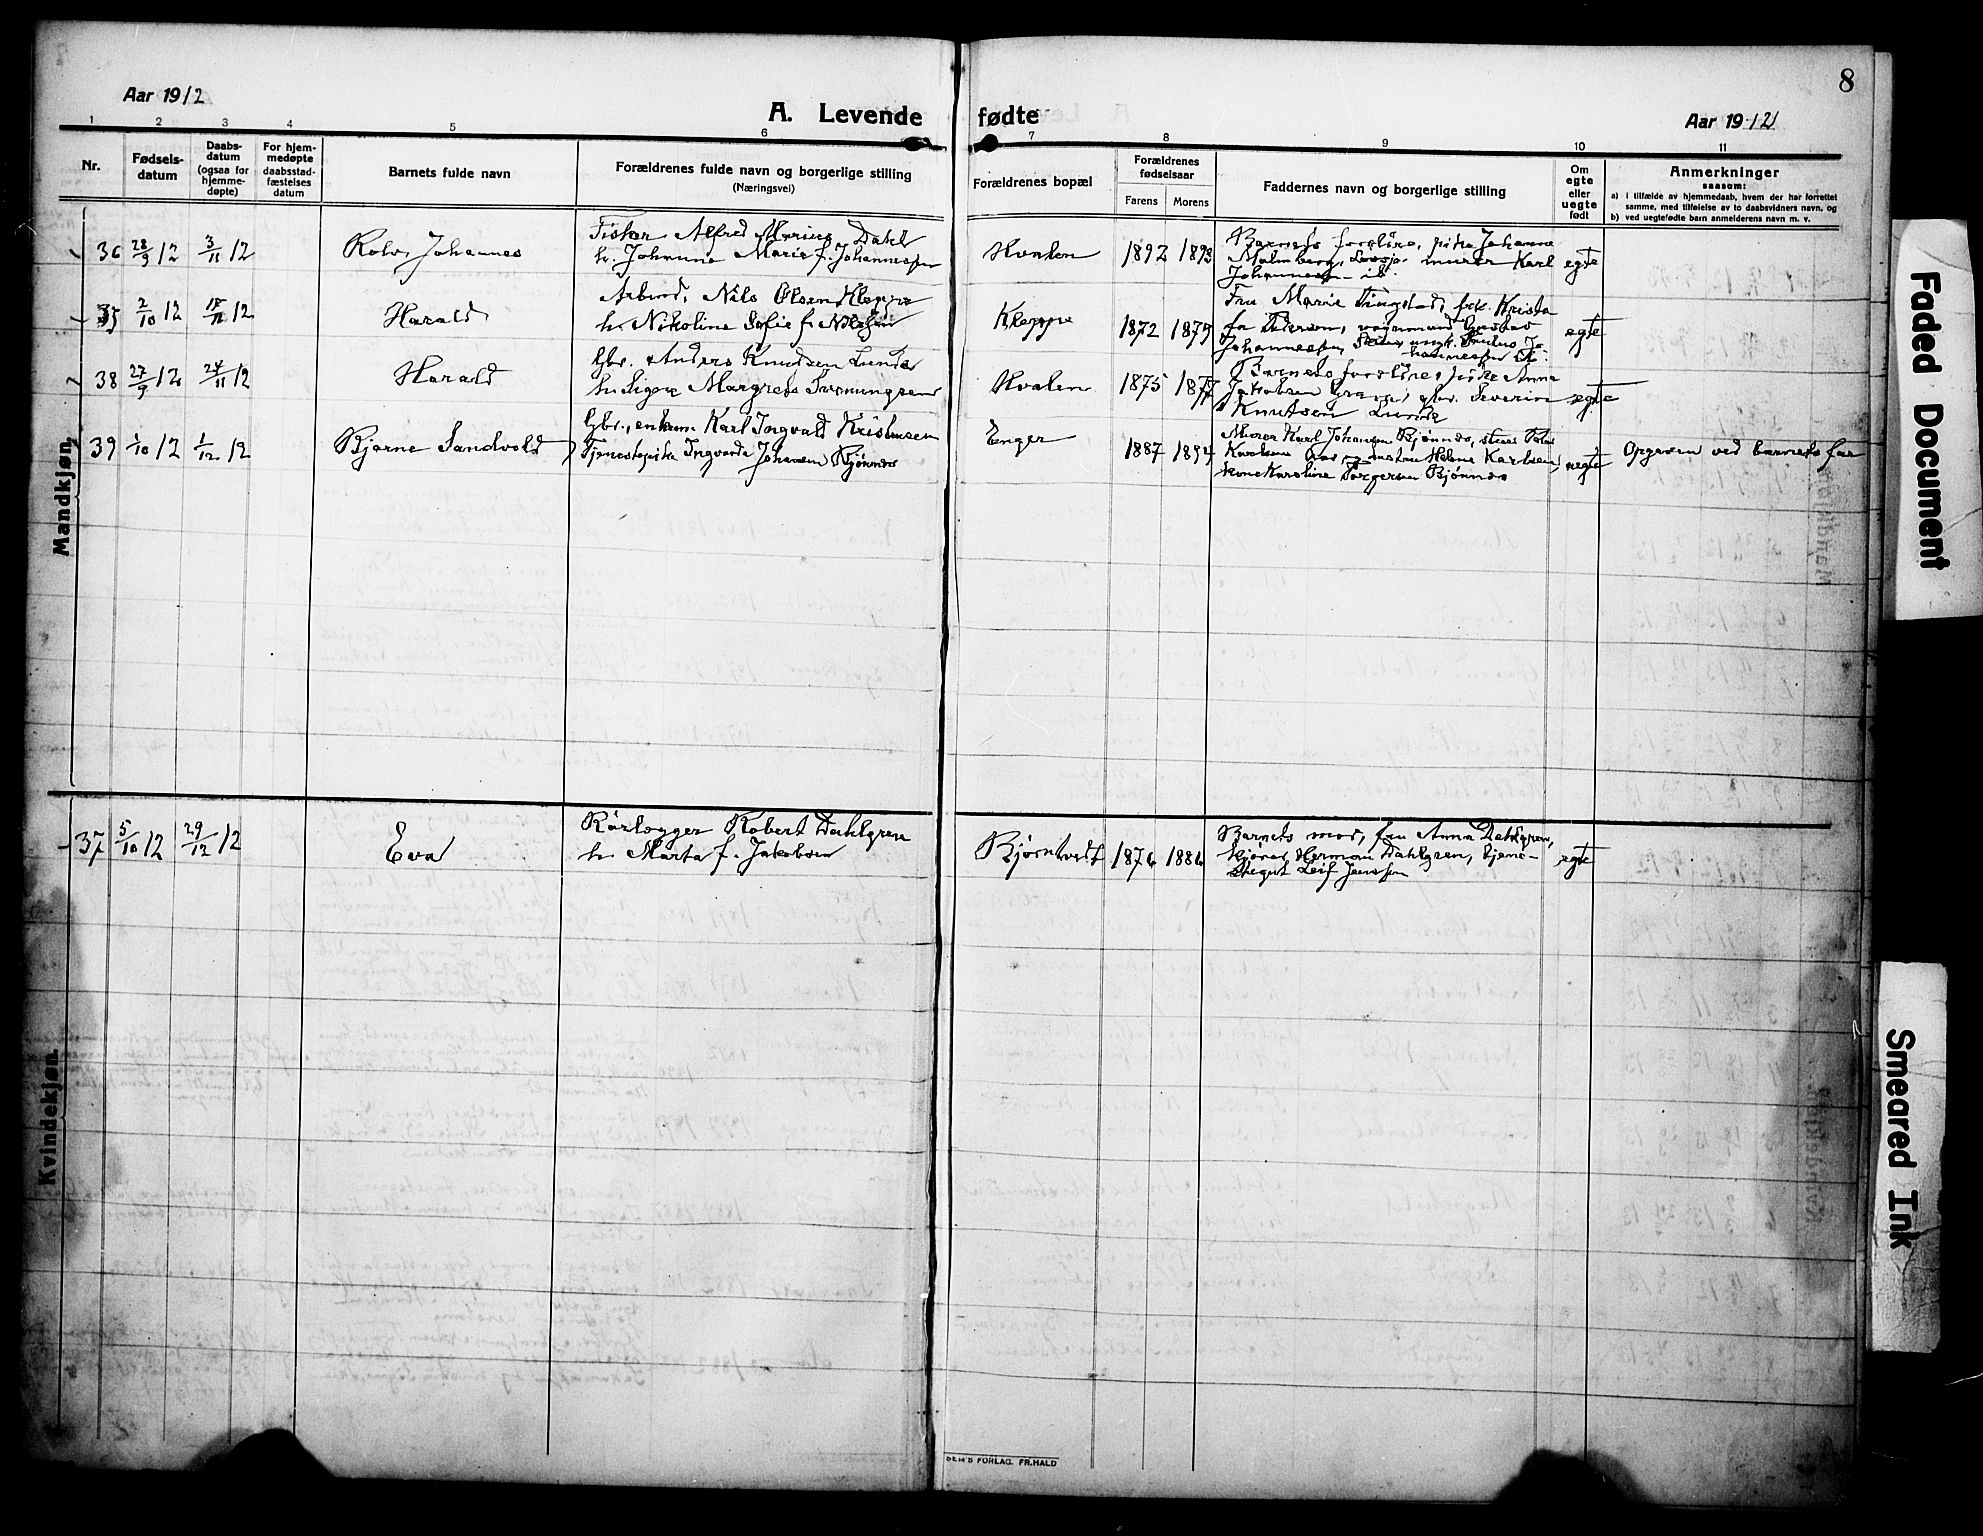 8
Aar 1912
A. Levende fødte
Aar 1912
1 2 3 4 5 6 7 8 9 10 11
Nr.
Fødsels-
datum
Daabs-
datum
(ogsaa for
hjemme-
døpte)
For hjem-
medøpte
daabsstad-
fæstelses
datum
Barnets fulde navn
Forældrenes fulde navn og borgerlige stilling
(Næringsvei)
Forældrenes bopæl
Forældrenes
fødselsaar
Farens Morens
Faddernes navn og borgerlige stilling
Om
egte
eller
uegte
født
Anmerkninger
saasom:
a) i tilfælde av hjemmedaab, hvem der har forrettet
samme, med tilføielse av to daabsvidners navn, og
b) ved uegtefødte barn anmelderens navn m. v.
Mandkjøn.
36 28/9 12 3/11 12
Rolv Johannes
Fisker Alfred Marius Dahl
h. Johanna Marie f. Johannessen
Hvalen
1892 1893
Barnets forældre, pike Johanne
Malmberg, murer Karl
Johannesen ib.
egte
2/10 12 12
Harald
Arbmd. Nils Olsen Kleppe
h. Nikoline Sofie f. Nilsen
Kleppe
1872 1875
Fru Marie Tingstad, frk. Krista
fa Pedersen, vognmand Gustav
Johannessen
egte
38 27/9 12 24/11 12
Harald
Gbr. Anders Knudsen Lunde
h. Signe Margrete Tvenningsen
Hvalen
1875 1877
Barnets forældre, pike Anna
Jakobsen gbr. Severin
Knutsen Lunde
egte
39 1/10 12 1/12 12
Bjarne Sandvold
Gbr., enkem. Karl Ingvald Kristensen
Tjenestepike Ingvarda Johansen Bjønnes
Enger
1887 1894
Murer Karl Johansen Bjønnes,
Karlsen og hustru Helene Karlsen,
kone Karoline Torgersen Bjønnes
uegte
Opgaven ved barnets far
Kvindekjøn.
37 5/10 12 29/12 12
Eva
Rørlægger Robert Dahlgren
h. Marta f. Jakobsen
Bjørntvedt
1874 1884
Barnets mor, fru Anna Dahlgren,
Herman Dahlgren, tjene-
stegut Leif Jenssen
egte
SEM'S FORLAG. FR.HALD
Faded Document
Smeared Ink